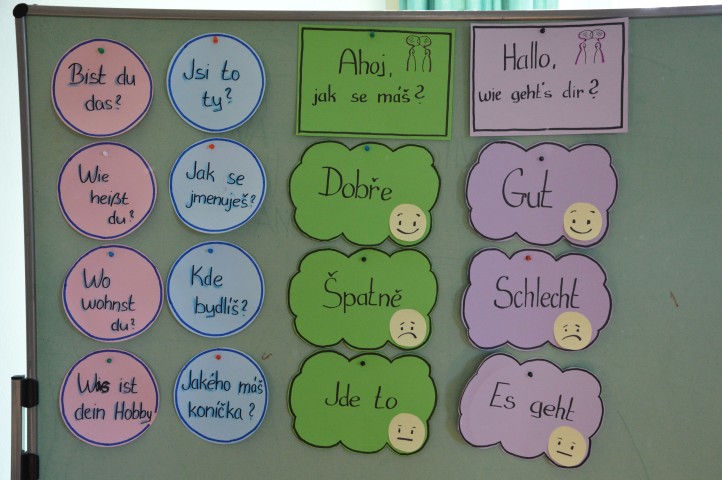 Bist du
das?
Jsi to
ty?
Ahoj,
jak se máš?
Hallo,
wie geht's dir?
Wie
heißt
du?
Jak se
jmenuješ?
Dobře
Gut
Wo
wohnst
du?
Kde
bydlíš?
Špatně
Schlecht
Was ist
dein Hobby
Jakého máš
koníčka?
Jde to
Es geht